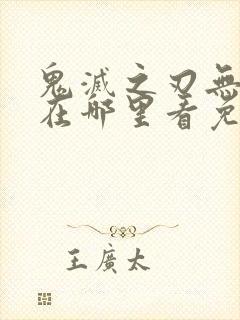 鬼滅之刃無
在哪里看免
王廣太